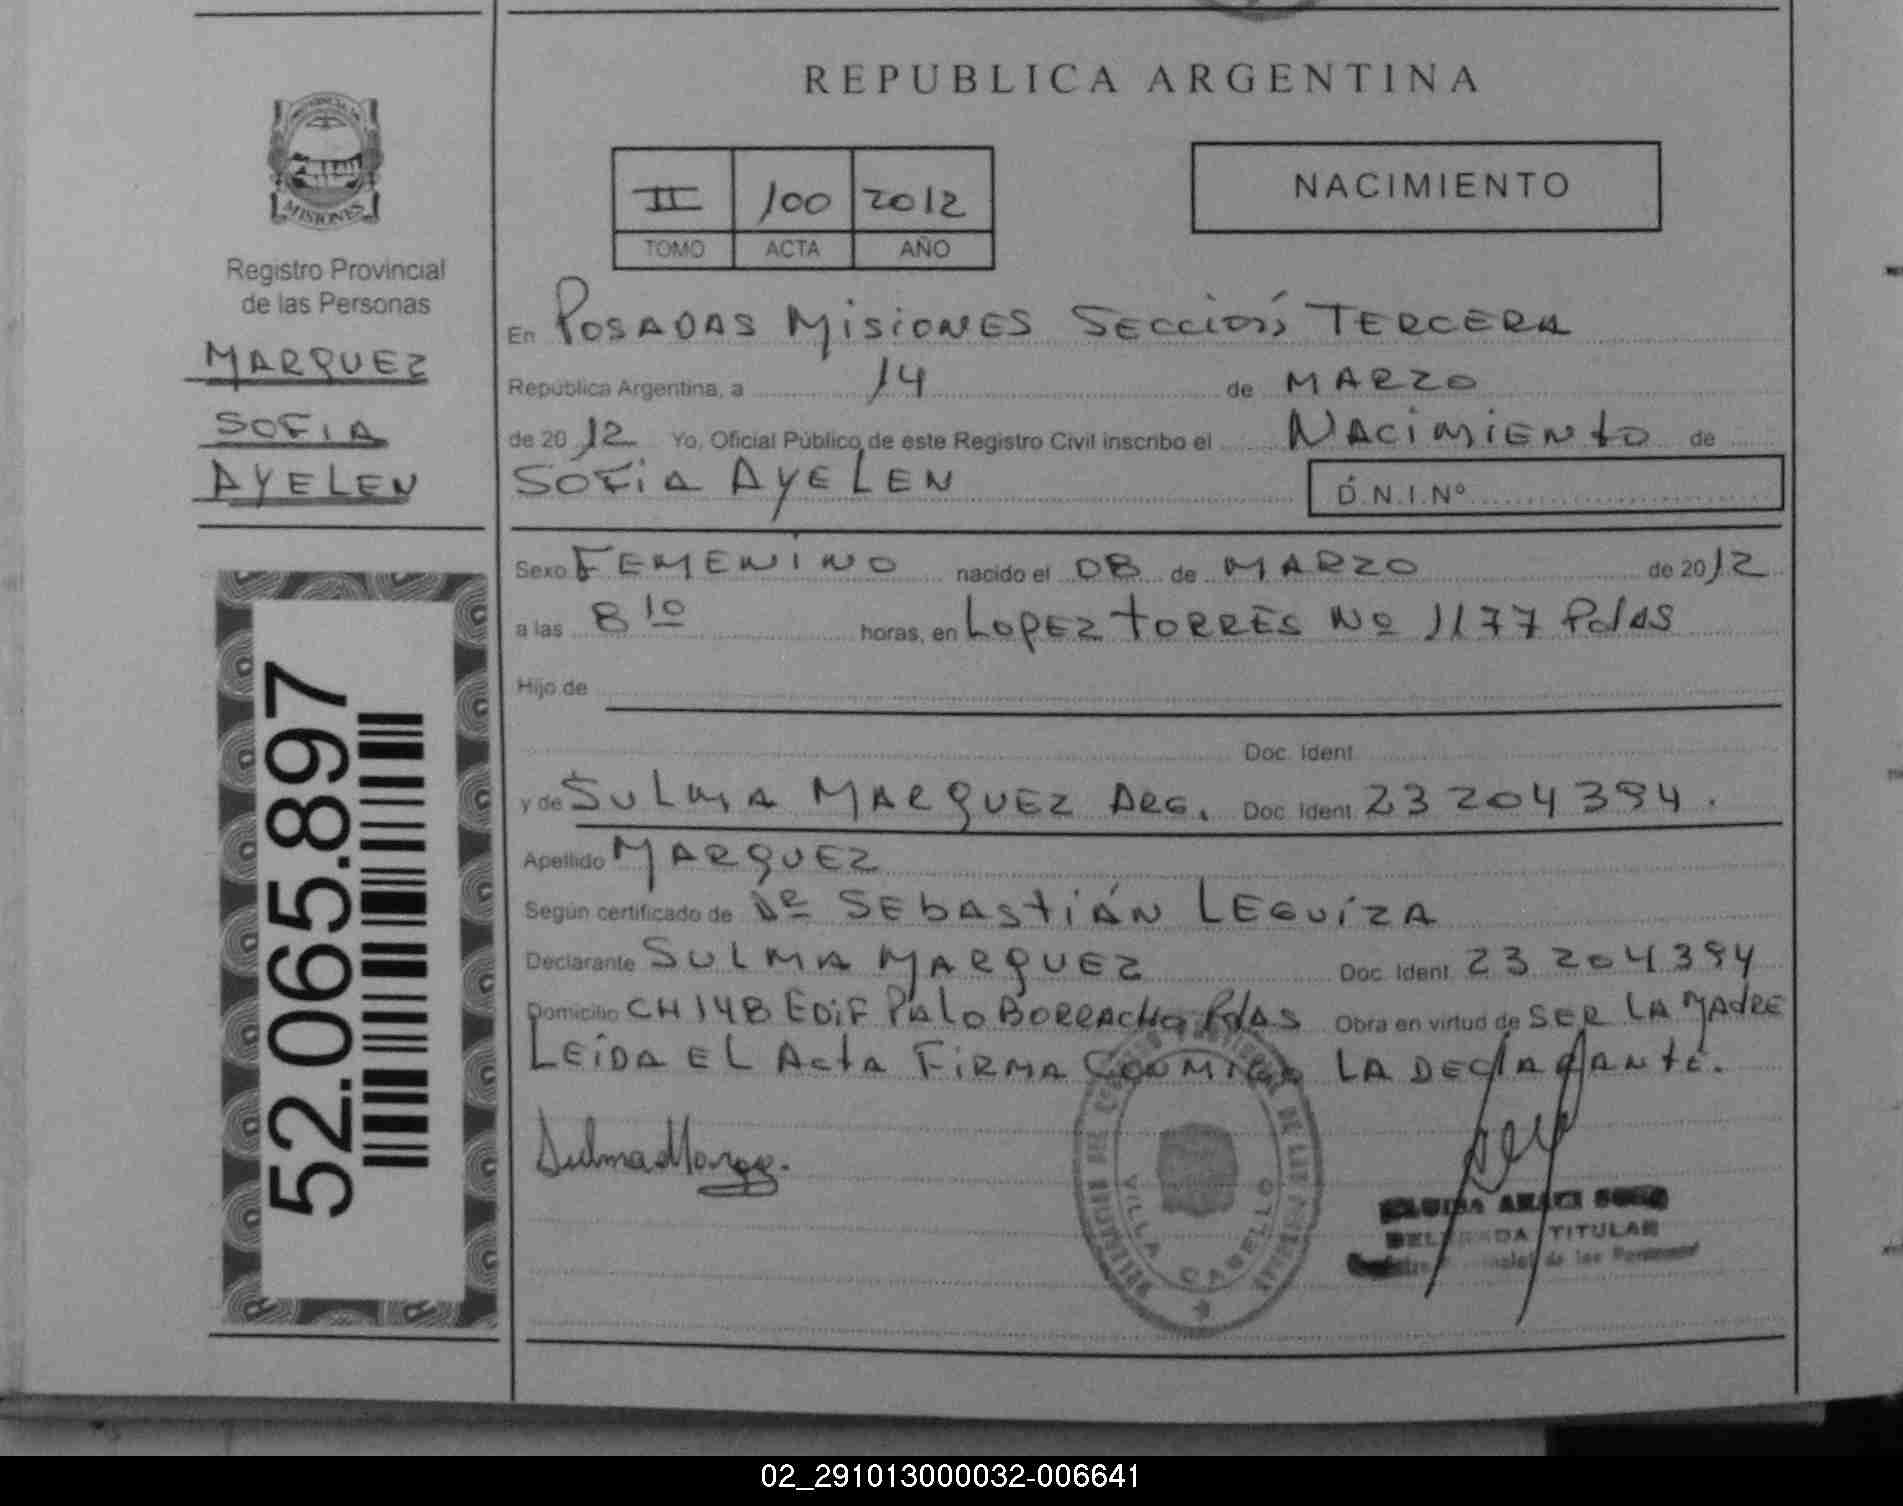 REPUBLICA ARGENTINA
PROVINCIA DE
MISIONES
Registro Provincial
de las Personas
MARQUEZ
SOFIA
AYELEN
52.065.897
II 100 2012
TOMO ACTA AÑO
NACIMIENTO
En POSADAS MISIONES SECCIÓN TERCERA
República Argentina, a 14 de MARZO
de 2012 Yo, Oficial Público de este Registro Civil inscribo el NACIMIENTO de
SOFIA AYELEN D.N.I.Nº
Sexo FEMENINO nacido el 08 de MARZO de 2012
a las 8 10 horas, en LOPEZ TORRES Nº 1177 Pdas
Hijo de
Doc. Ident.
y de SULMA MARQUEZ ARG. Doc. Ident. 23 204 394.
Apellido MARQUEZ
Según certificado de DR SEBASTIÁN LEGUÍZA
Declarante SULMA MARQUEZ Doc. Ident. 23 204 394
Domicilio CH 148 EDIF PALO BORRACHO Pdas Obra en virtud de SER LA MADRE
LEÍDA EL ACTA FIRMA CONMIGO LA DECLARANTE.
VILLA CABELLO
TITULAR
de las
02_291013000032-006641